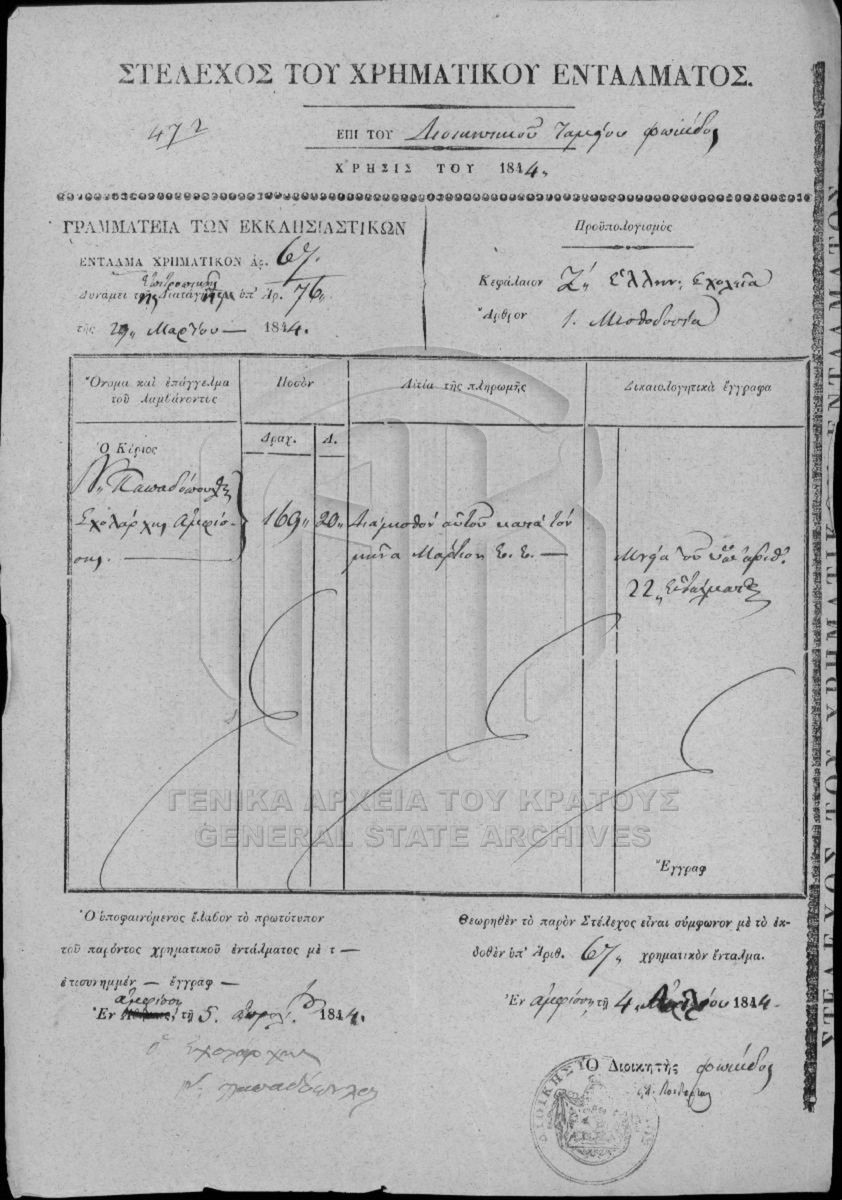 ΣΤΕΛΕΧΟΣ ΤΟΥ ΧΡΗΜΑΤΙΚΟΥ ΕΝΤΑΛΜΑΤΟΣ.
ΕΠΙ ΤΟΥ Διοικητικοῦ Ταμείου Φωκίδος
ΧΡΗΣΙΣ ΤΟΥ 1844
ΓΡΑΜΜΑΤΕΙΑ ΤΩΝ ΕΚΚΛΗΣΙΑΣΤΙΚΩΝ
ΕΝΤΑΛΜΑ ΧΡΗΜΑΤΙΚΟΝ Ἀρ. 67.
Δυνάμει τῆς Διαταγῆς ὑπ' Ἀρ. 76
τῆς 29 Μαρτίου 1844.
Προϋπολογισμὸς
Κεφάλαιον Ζ' Ἑλλην. Σχολεῖα
Ἄρθρον 1. Μισθοδοσία
Ὄνομα καὶ ἐπάγγελμα
τοῦ λαμβάνοντος
Ποσὸν
Αἰτία τῆς πληρωμῆς
Δικαιολογητικὰ ἔγγραφα
Δραχ. Λ.
Ὁ Κύριος
Ν. Παπαδόπουλος
Σχολάρχης Ἀμφίσ-
σης.
169 20
Διὰ μισθόν αὐτοῦ κατὰ τόν
μῆνα Μάρτιον ἔ. ἔ.
ἀριθ.
22
Ἔγγραφ
ΓΕΝΙΚΑ ΑΡΧΕΙΑ ΤΟΥ ΚΡΑΤΟΥΣ
GENERAL STATE ARCHIVES
Ὁ ὑποφαινόμενος ἔλαβον τὸ πρωτότυπον
τοῦ παρόντος χρηματικοῦ ἐντάλματος μὲ τ
ἐπισυνημμέν ἔγγραφ
Ἀμφίσση
Ἐν τῇ 5 1844.
ὁ Σχολάρχης
Ν. Παπαδόπουλος
Θεωρηθὲν τὸ παρὸν Στέλεχος εἶναι σύμφωνον μὲ τὸ ἐκ-
δοθὲν ὑπ' Ἀριθ. 67 χρηματικὸν ἔνταλμα.
Ἐν Ἀμφίσσῃ τῇ 4 Ἀπριλίου 1844
Ὁ Διοικητής Φωκίδος
ΣΤΕΛΕΧΟΣ ΤΟΥ ΧΡΗΜΑΤΙΚΟΥ ΕΝΤΑΛΜΑΤΟΣ